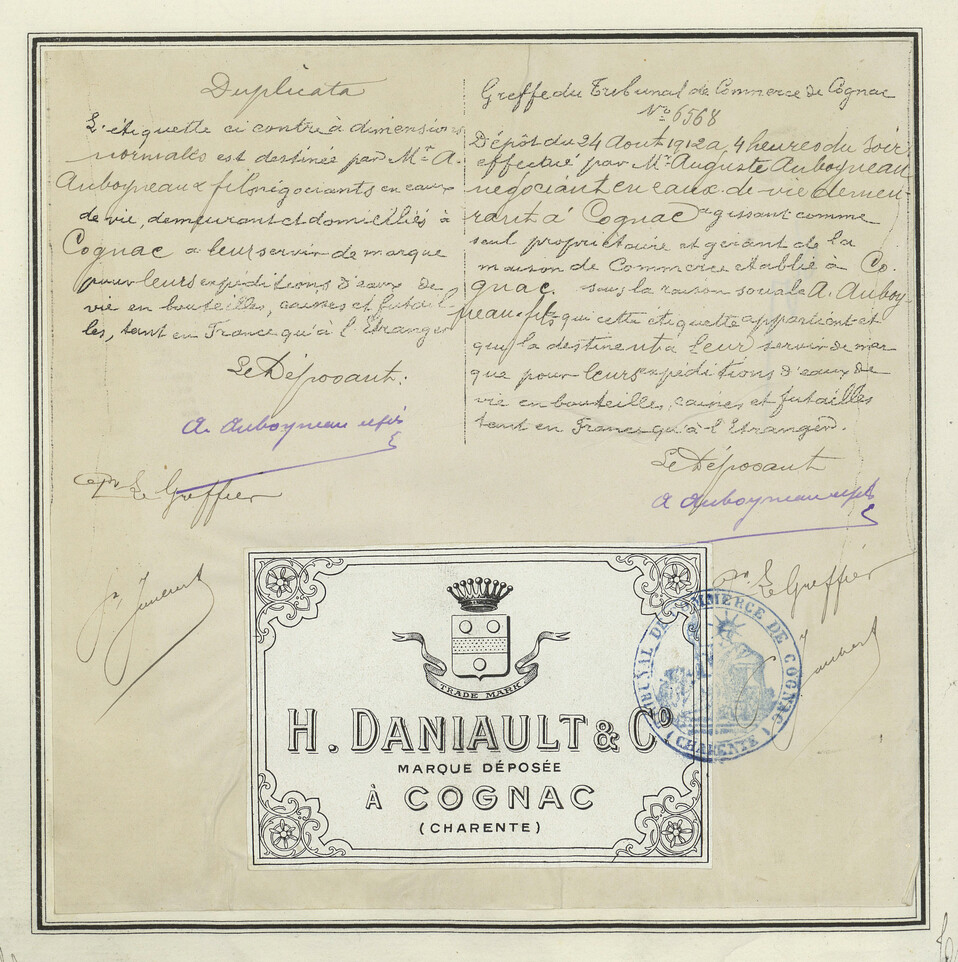 Duplicata
L'étiquette ci contre à dimensions
normales est destinée par Mr. A.
Auboyneau & fils négociants en eaux
de vie, demeurant et domiciliés à
Cognac a leur servir de marque
pour leurs expéditions d'eaux de
vie en bouteilles, caisses et futail-
les, tant en France qu'à l'étranger
Le Déposant:
A. Auboyneau & fils
Le Greffier
Greffe du Tribunal de Commerce de Cognac
No 6568
Dépôt du 24 Aout 1912 a 4 heures du soir
effectué par Mr. Auguste Auboyneau
négociant en eaux-de-vie demeu-
rant à Cognac agissant comme
seul propriétaire et gérant de la
maison de Commerce établie à Co-
gnac sous la raison sociale A. Auboy-
neau & fils qui cette étiquette appartient et
qui la destinent à leur servir de mar
que pour leurs expéditions d'eaux de
vie en bouteilles, caisses et futailles
tant en France qu'à l'étranger.
Le Déposant
A Auboyneau & fils
Le Greffier
TRADE MARK
H. DANIAULT & Co
MARQUE DÉPOSÉE
À COGNAC
(CHARENTE)
TRIBUNAL DE COMMERCE DE COGNAC
(CHARENTE)